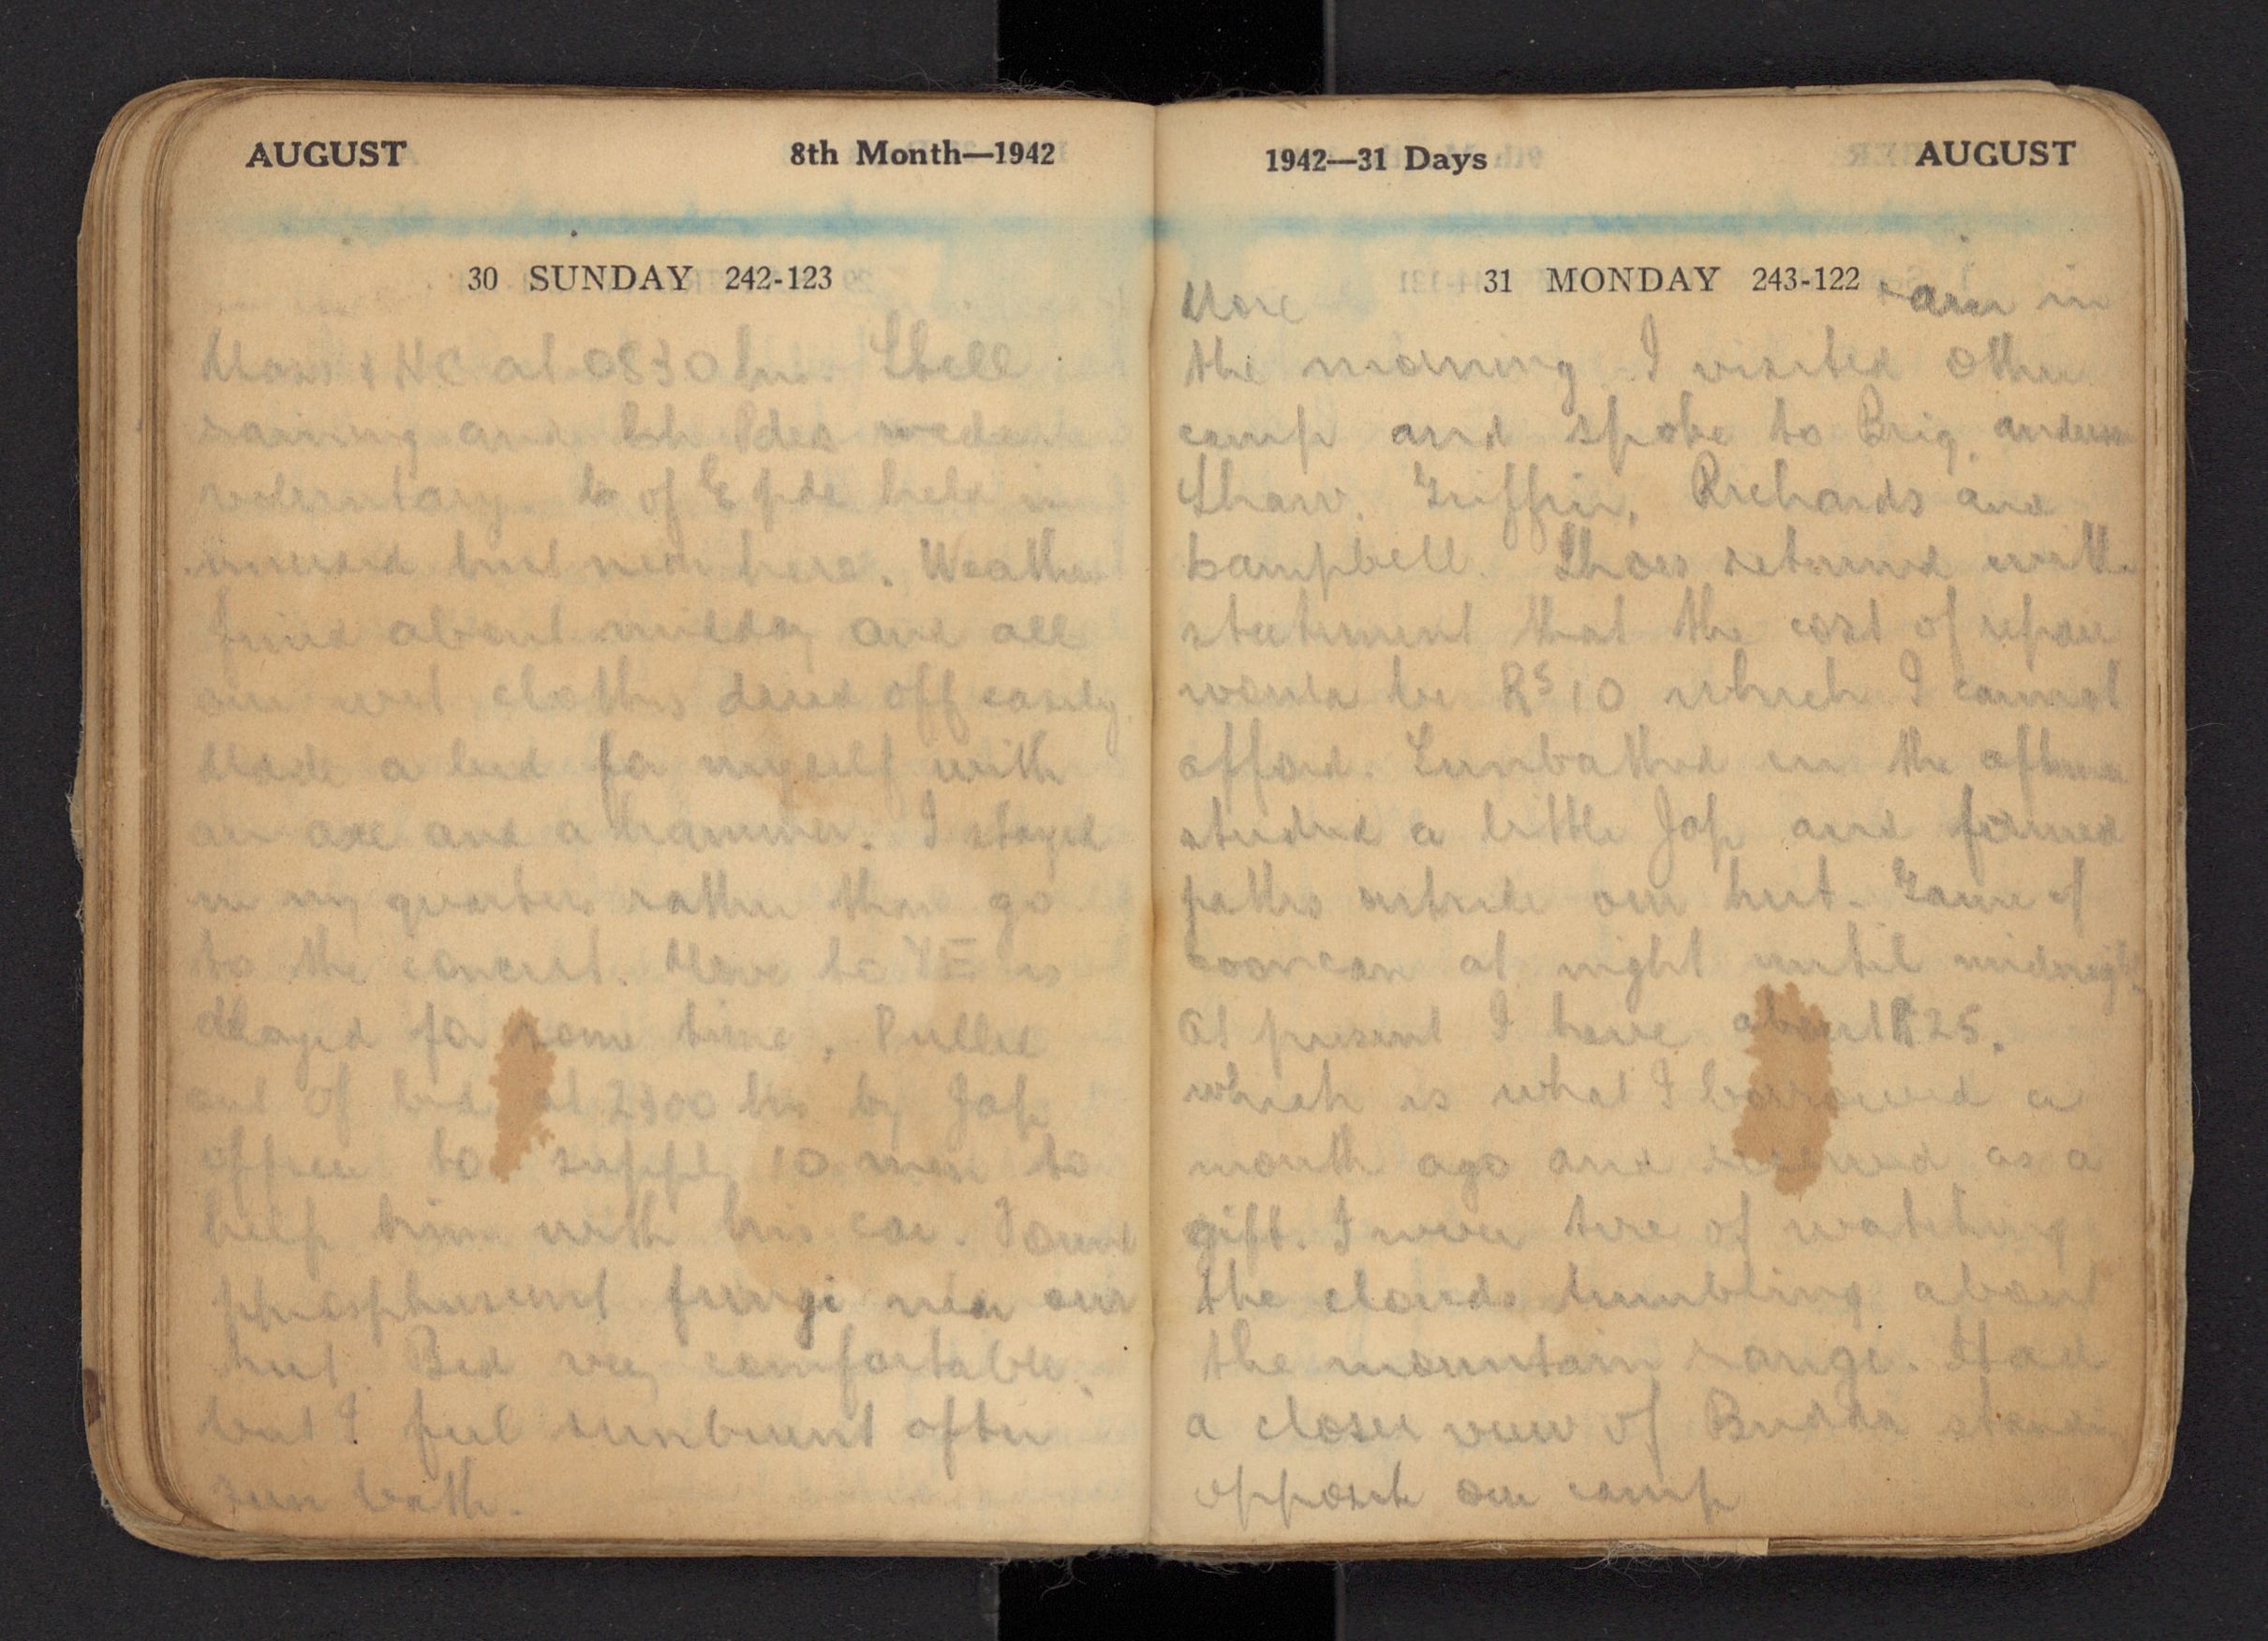 AUGUST 8th Month—1942
30 SUNDAY 242-123
Mass & HC at 0830 hrs. Still
raining and
voluntary. C of E pde held in
but near here. Weather
fined about midday and all
our wet clothes dried off easily.
Made a bed for myself with
an axe and a hammer. I stayed
in my quarters rather than go
to the concert. Move to YE is
delayed for some time. Pulled
out of bed at 2300 hrs by Jap
officer to supply 10 men to
help him with his car. Found
phosphuresent fungi near our
hut. Bed very comfortable.
but I feel sunburnt after
sun bath.
1942—31 Days AUGUST
31 MONDAY 243-122
More rain in
the morning. I visited other
camp and spoke to Brig. anderson
Shaw, Griffin, Richards and
Campbell. Shoes returned with
statement that the cost of repair
would be Rs 10 which I cannot
afford. Sunbathed in the afternoon
studied a little Jap and formed
paths outside our hut. Game of
cooncan at night until midnight.
At present I have about R 25.
which is what I borrowed a
month ago and received as a
gift. I never tire of watching
the clouds tumbling about
the mountain range. Had
a closer view of Budda
opposite our camp